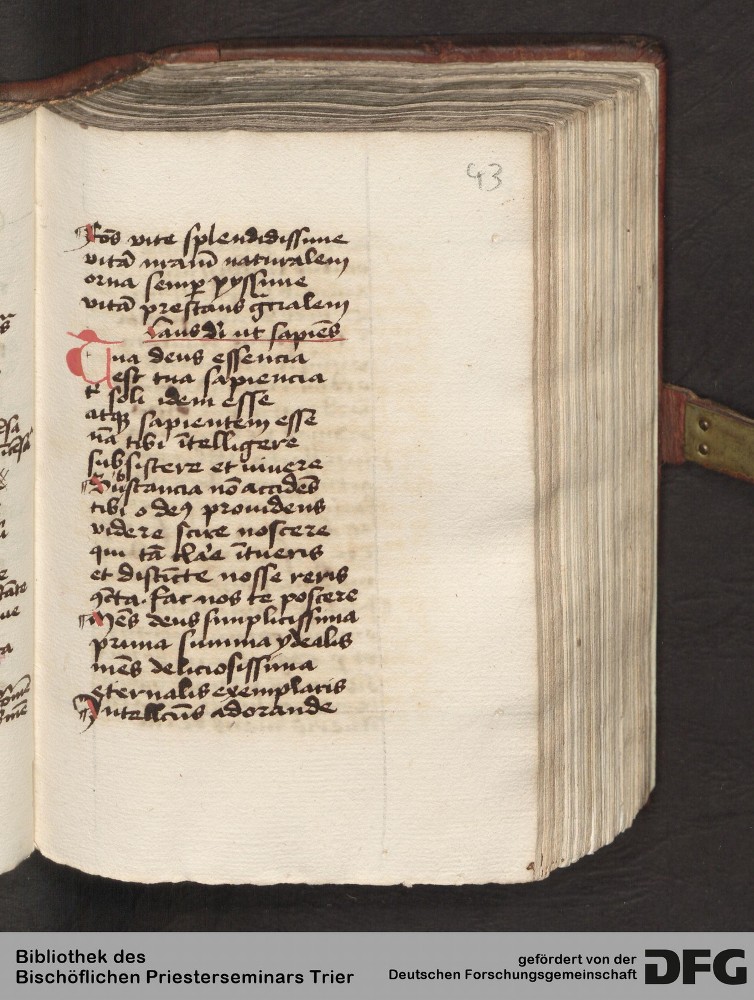 43
Fōs vite splendidissime
vitā nrām naturalem
orna semp pyssime
vitā prestans gr̄cialem
Laus dī ut sapiēs
Tua deus essencia
est tua sapiencia
te soli idem esse
atq sapientem esse
nā tibi ītelligere
subsistere et vivere
Substancia nō accidēs
tibi o deꝰ providens
videre scire noscere
qui tā clāre ītueris
et distīcte nosse reris
ꝯcta. fac nos te poscere
Mēs deus simplicissima
prima summa ydealis
mēs deliciosissima
eternalis exemplaris
Intellcūs adorande
Bibliothek des
Bischöflichen Priesterseminars Trier
gefördert von der
Deutschen Forschungsgemeinschaft
DFG